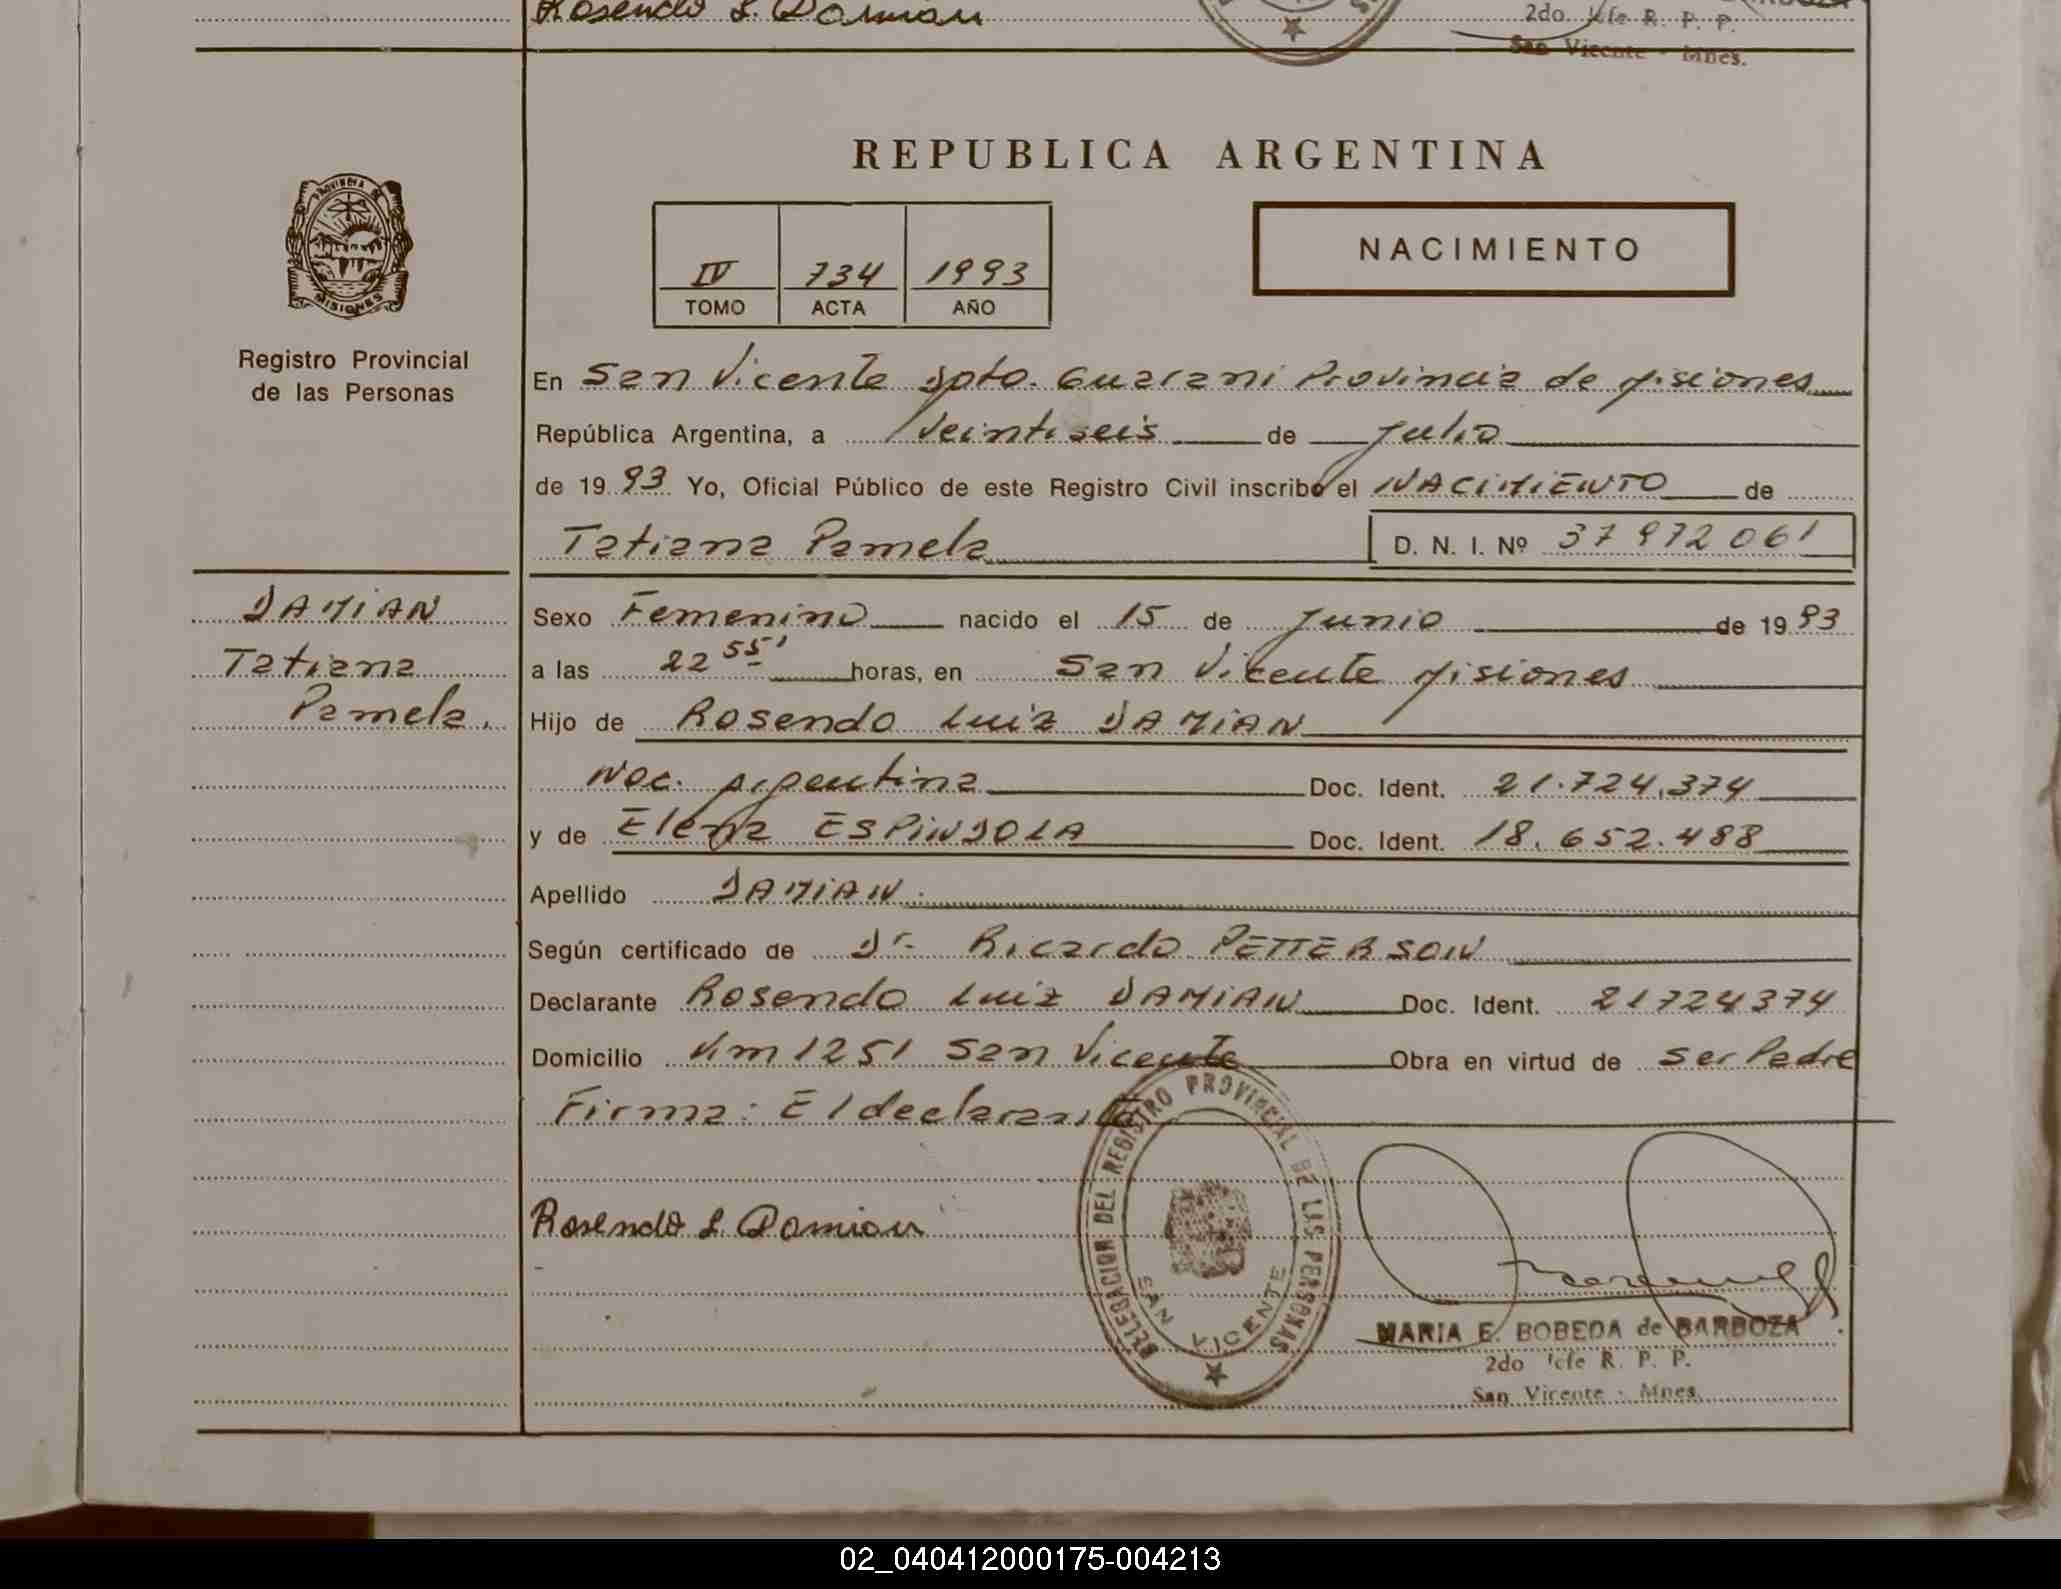 Rosendo L. Damian
2do Jefe R. P. P.
San Vicente - Mnes.
REPUBLICA ARGENTINA
PROVINCIA DE
MISIONES
Registro Provincial
de las Personas
IV 734 1993
TOMO ACTA AÑO
NACIMIENTO
En San Vicente Dpto. Guarani Provincia de Misiones
República Argentina, a Veintiseis de Julio
de 1993 Yo, Oficial Público de este Registro Civil inscribo el NACIMIENTO de
Tatiana Pamela D. N. I. Nº 37972061
DAMIAN
Tatiana
Pamela.
Sexo Femenino nacido el 15 de Junio de 1993
a las 22 55' horas, en San Vicente Misiones
Hijo de Rosendo Luiz DAMIAN
Nac. Argentina Doc. Ident. 21.724.374
y de Elena ESPINDOLA Doc. Ident. 18.652.488
Apellido DAMIAN.
Según certificado de Dr. Ricardo PETTERSON
Declarante Rosendo Luiz DAMIAN Doc. Ident. 21724374
Domicilio Km 1251 San Vicente Obra en virtud de ser Padre
Firma: El declarante
Rosendo L. Damian
DELEGACION DEL REGISTRO PROVINCIAL DE LAS PERSONAS
SAN VICENTE
MARIA E. BOBEDA de BARBOZA
2do Jefe R. P. P.
San Vicente - Mnes.
02_040412000175-004213